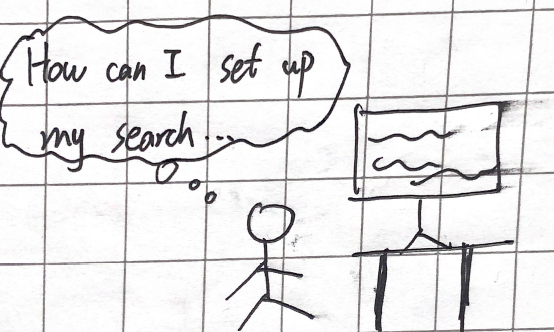 How can I set up
my search...